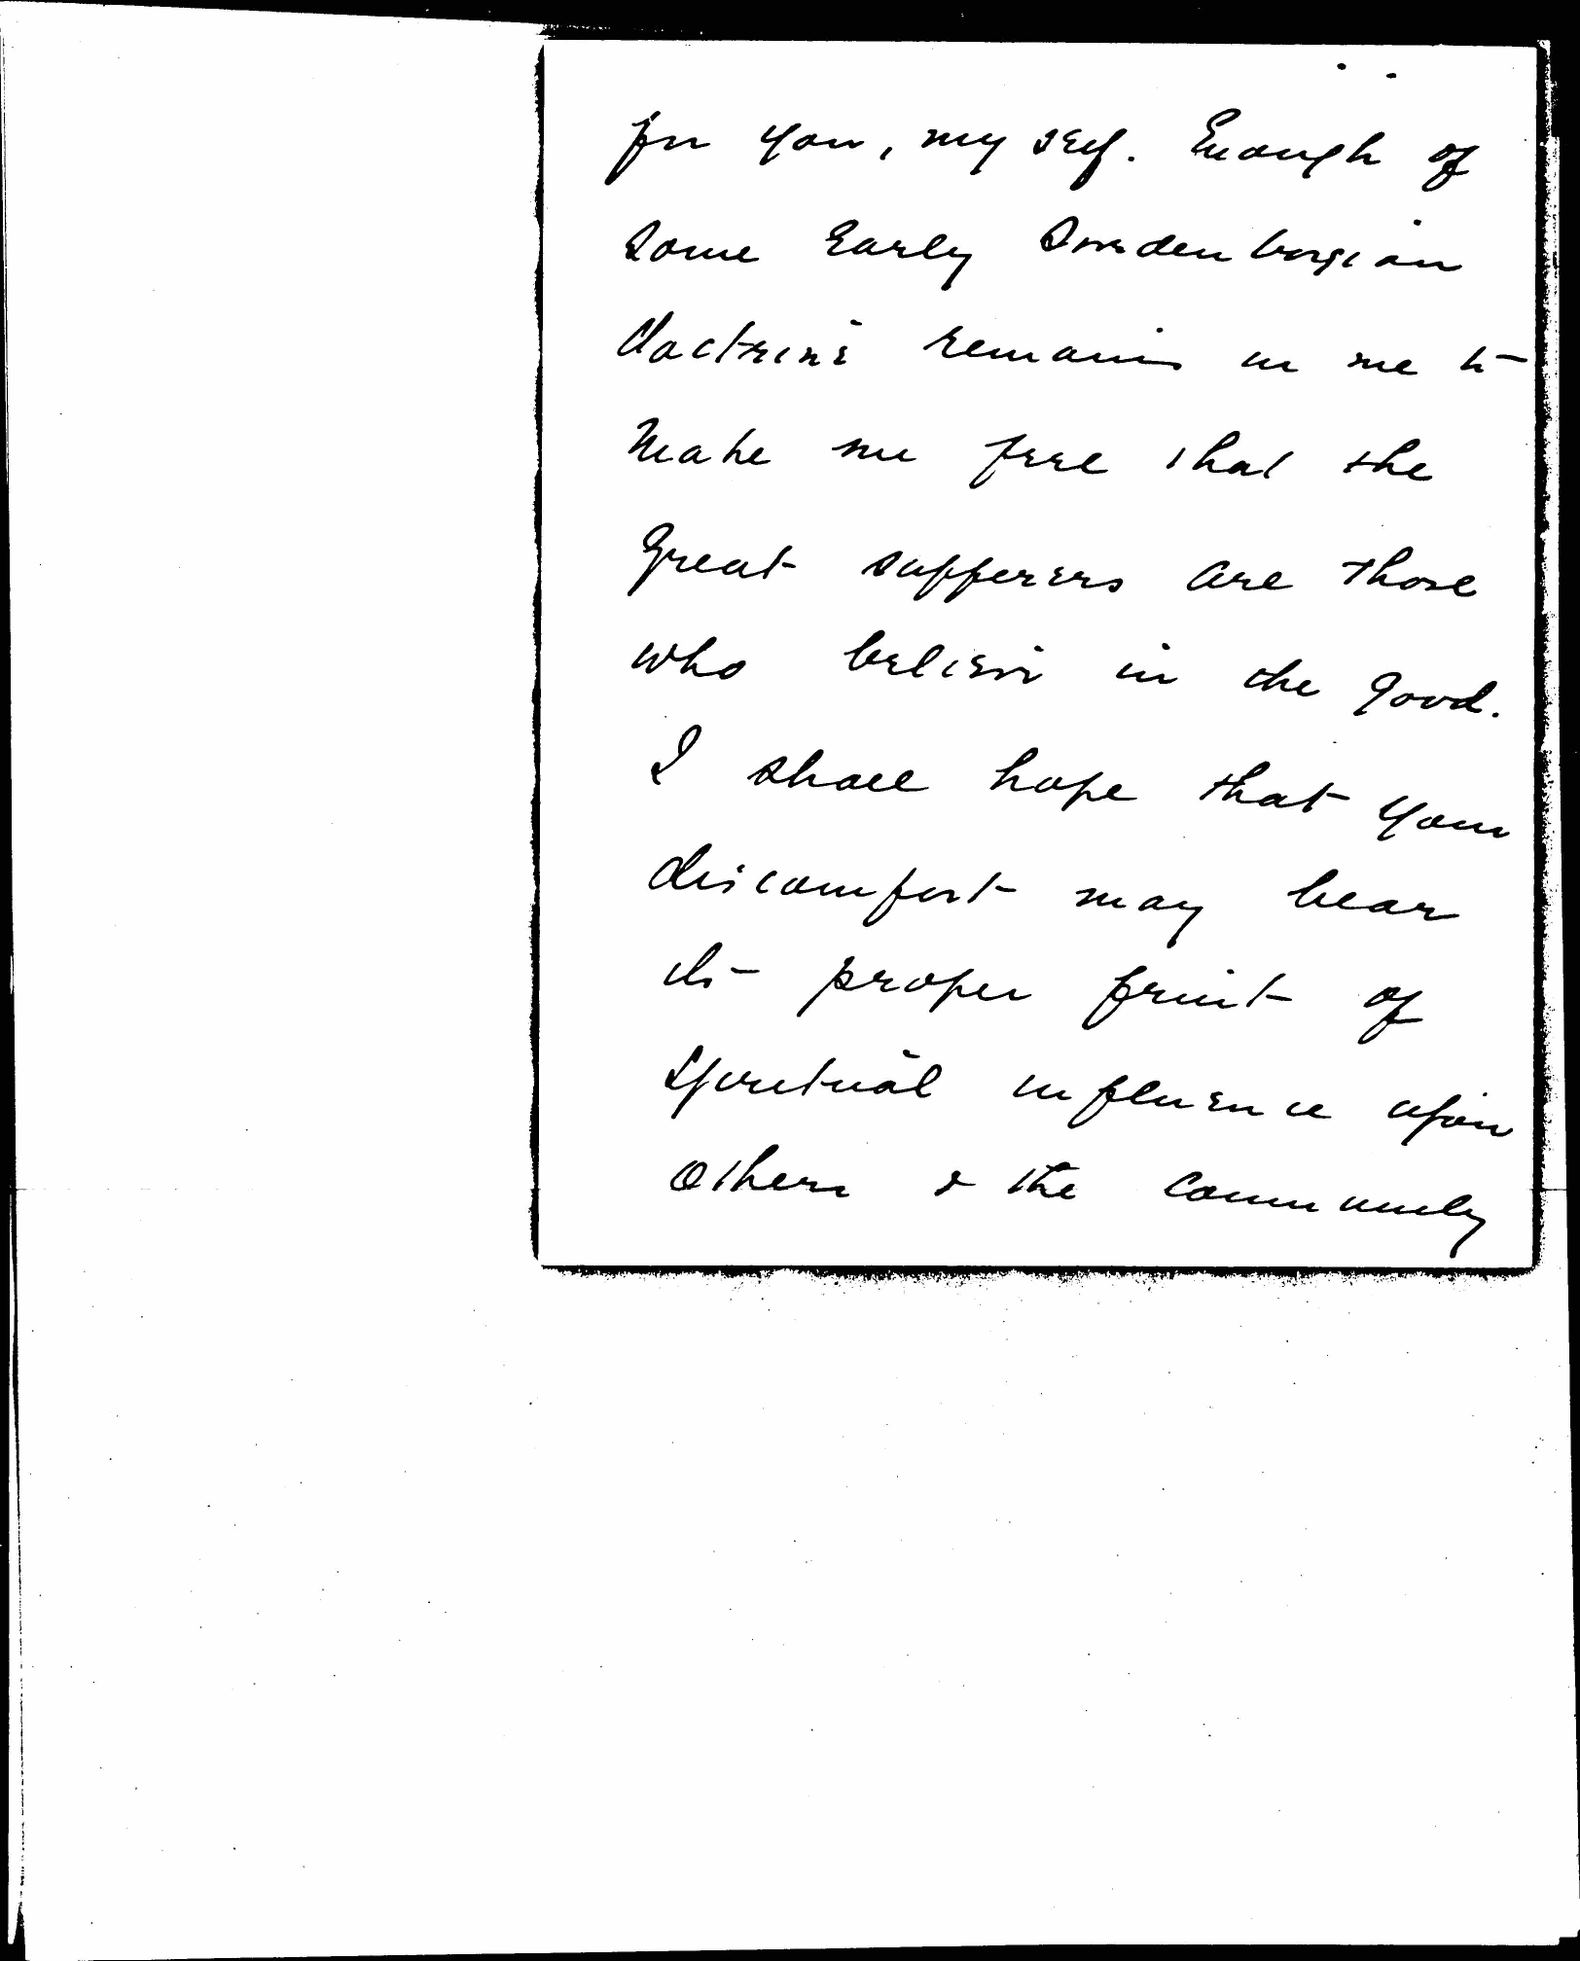 for you, myself. Enough of
some early Swedenborgian
doctrine remains in me to
make me feel that the
great sufferers are those
who believe in the good.
I shall hope that your
discomfort may bear
its proper fruit of
spiritual influence upon
others & the community